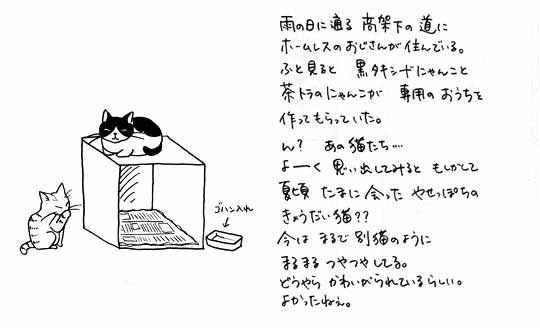 雨の日に通る 高架下の道に
ホームレスのおじさんが住んでいる。
ふと見ると 黒タキシードにゃんこと
茶トラのにゃんこが 専用のおうちを
作ってもらっていた。
ん? あの猫たち‥‥
よーーく思い出してみると もしかして
夏頃 たまに会った やせっぽちの
きょうだい猫??
今は まるで別猫のように
まるまる つやつやしてる。
どうやら かわいがられているらしい。
よかったねぇ。
ゴハン入れ